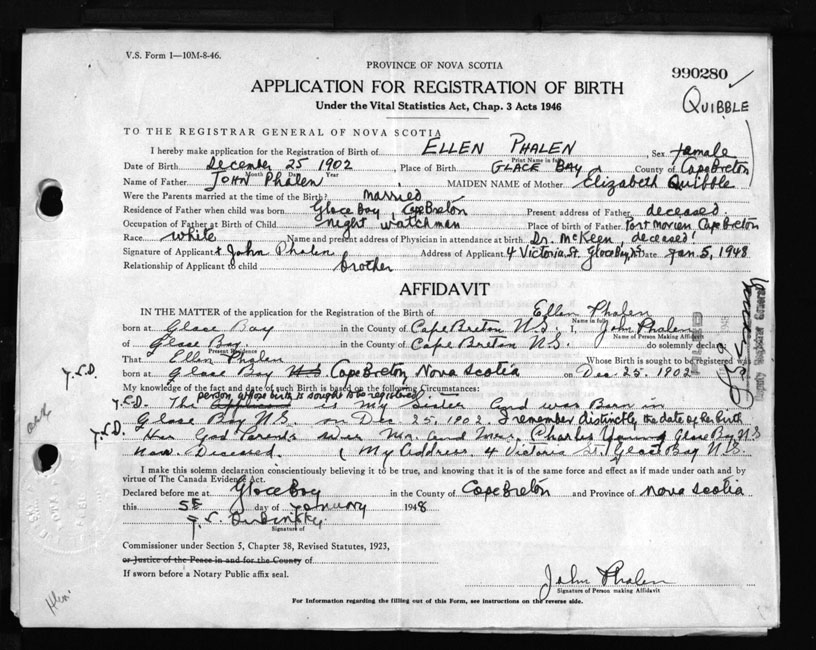 V.S. Form 1—10M-8-46.
PROVINCE OF NOVA SCOTIA
990280
APPLICATION FOR REGISTRATION OF BIRTH
QUIBBLE
Under the Vital Statistics Act, Chap. 3 Acts 1946
TO THE REGISTRAR GENERAL OF NOVA SCOTIA
I hereby make application for the Registration of Birth of ELLEN PHALEN, Sex female
Print Name in full
Date of Birth December 25 1902, Place of Birth GLACE BAY County of Cape Breton
Month Day Year
Name of Father John Phalen MAIDEN NAME of Mother Elizabeth Quibble
Were the Parents married at the time of the Birth? married
Residence of Father when child was born Glace Bay, Cape Breton Present address of Father deceased.
Occupation of Father at Birth of Child night watchman Place of birth of Father Port Morien Cape Breton
Race white Name and present address of Physician in attendance at birth Dr. McKeen, deceased
Signature of Applicant John Phalen Address of Applicant 4 Victoria St. Glace Bay, NS Date Jan. 5, 1948
Relationship of Applicant to child brother
AFFIDAVIT
IN THE MATTER of the application of the Registration of the Birth of Ellen Phalen
Name in full
born at Glace Bay in the County of Cape Breton N.S. I, John Phalen
Name of Person Making Affidavit
of Glace Bay in the County of Cape Breton N.S. do solemnly declare
Present Residence
That Ellen Phalen Whose Birth is sought to be registered was
born at Glace Bay N.S. Cape Breton, Nova Scotia on Dec. 25. 1902
My knowledge of the fact and date of such Birth is based on the following Circumstances:
person, whose birth is sought to be registered,
The Applicant is My Sister and was Born in
Glace Bay N.S. on Dec 25, 1902. I remember distinctly the date of her birth
Her God Parents were Mr. and Mrs. Charles Young Glace Bay N.S
Now Deseased. (My Address. 4 Victoria St. Glace Bay N.S.
I make this solemn declaration conscientiously believing it to be true, and knowing that it is of the same force and effect as if made under oath and by
virtue of The Canada Evidence Act.
Declared before me at Glace Bay in the County of Cape Breton and Province of Nova Scotia
this 5th day of January 1948
Signature of
Commissioner under Section 5, Chapter 38, Revised Statutes, 1923,
or Justice of the Peace in and for the County of
If sworn before a Notary Public affix seal.
John Phalen
Signature of Person making Affidavit
For Information regarding the filling out of this Form, see instructions on the reverse side.